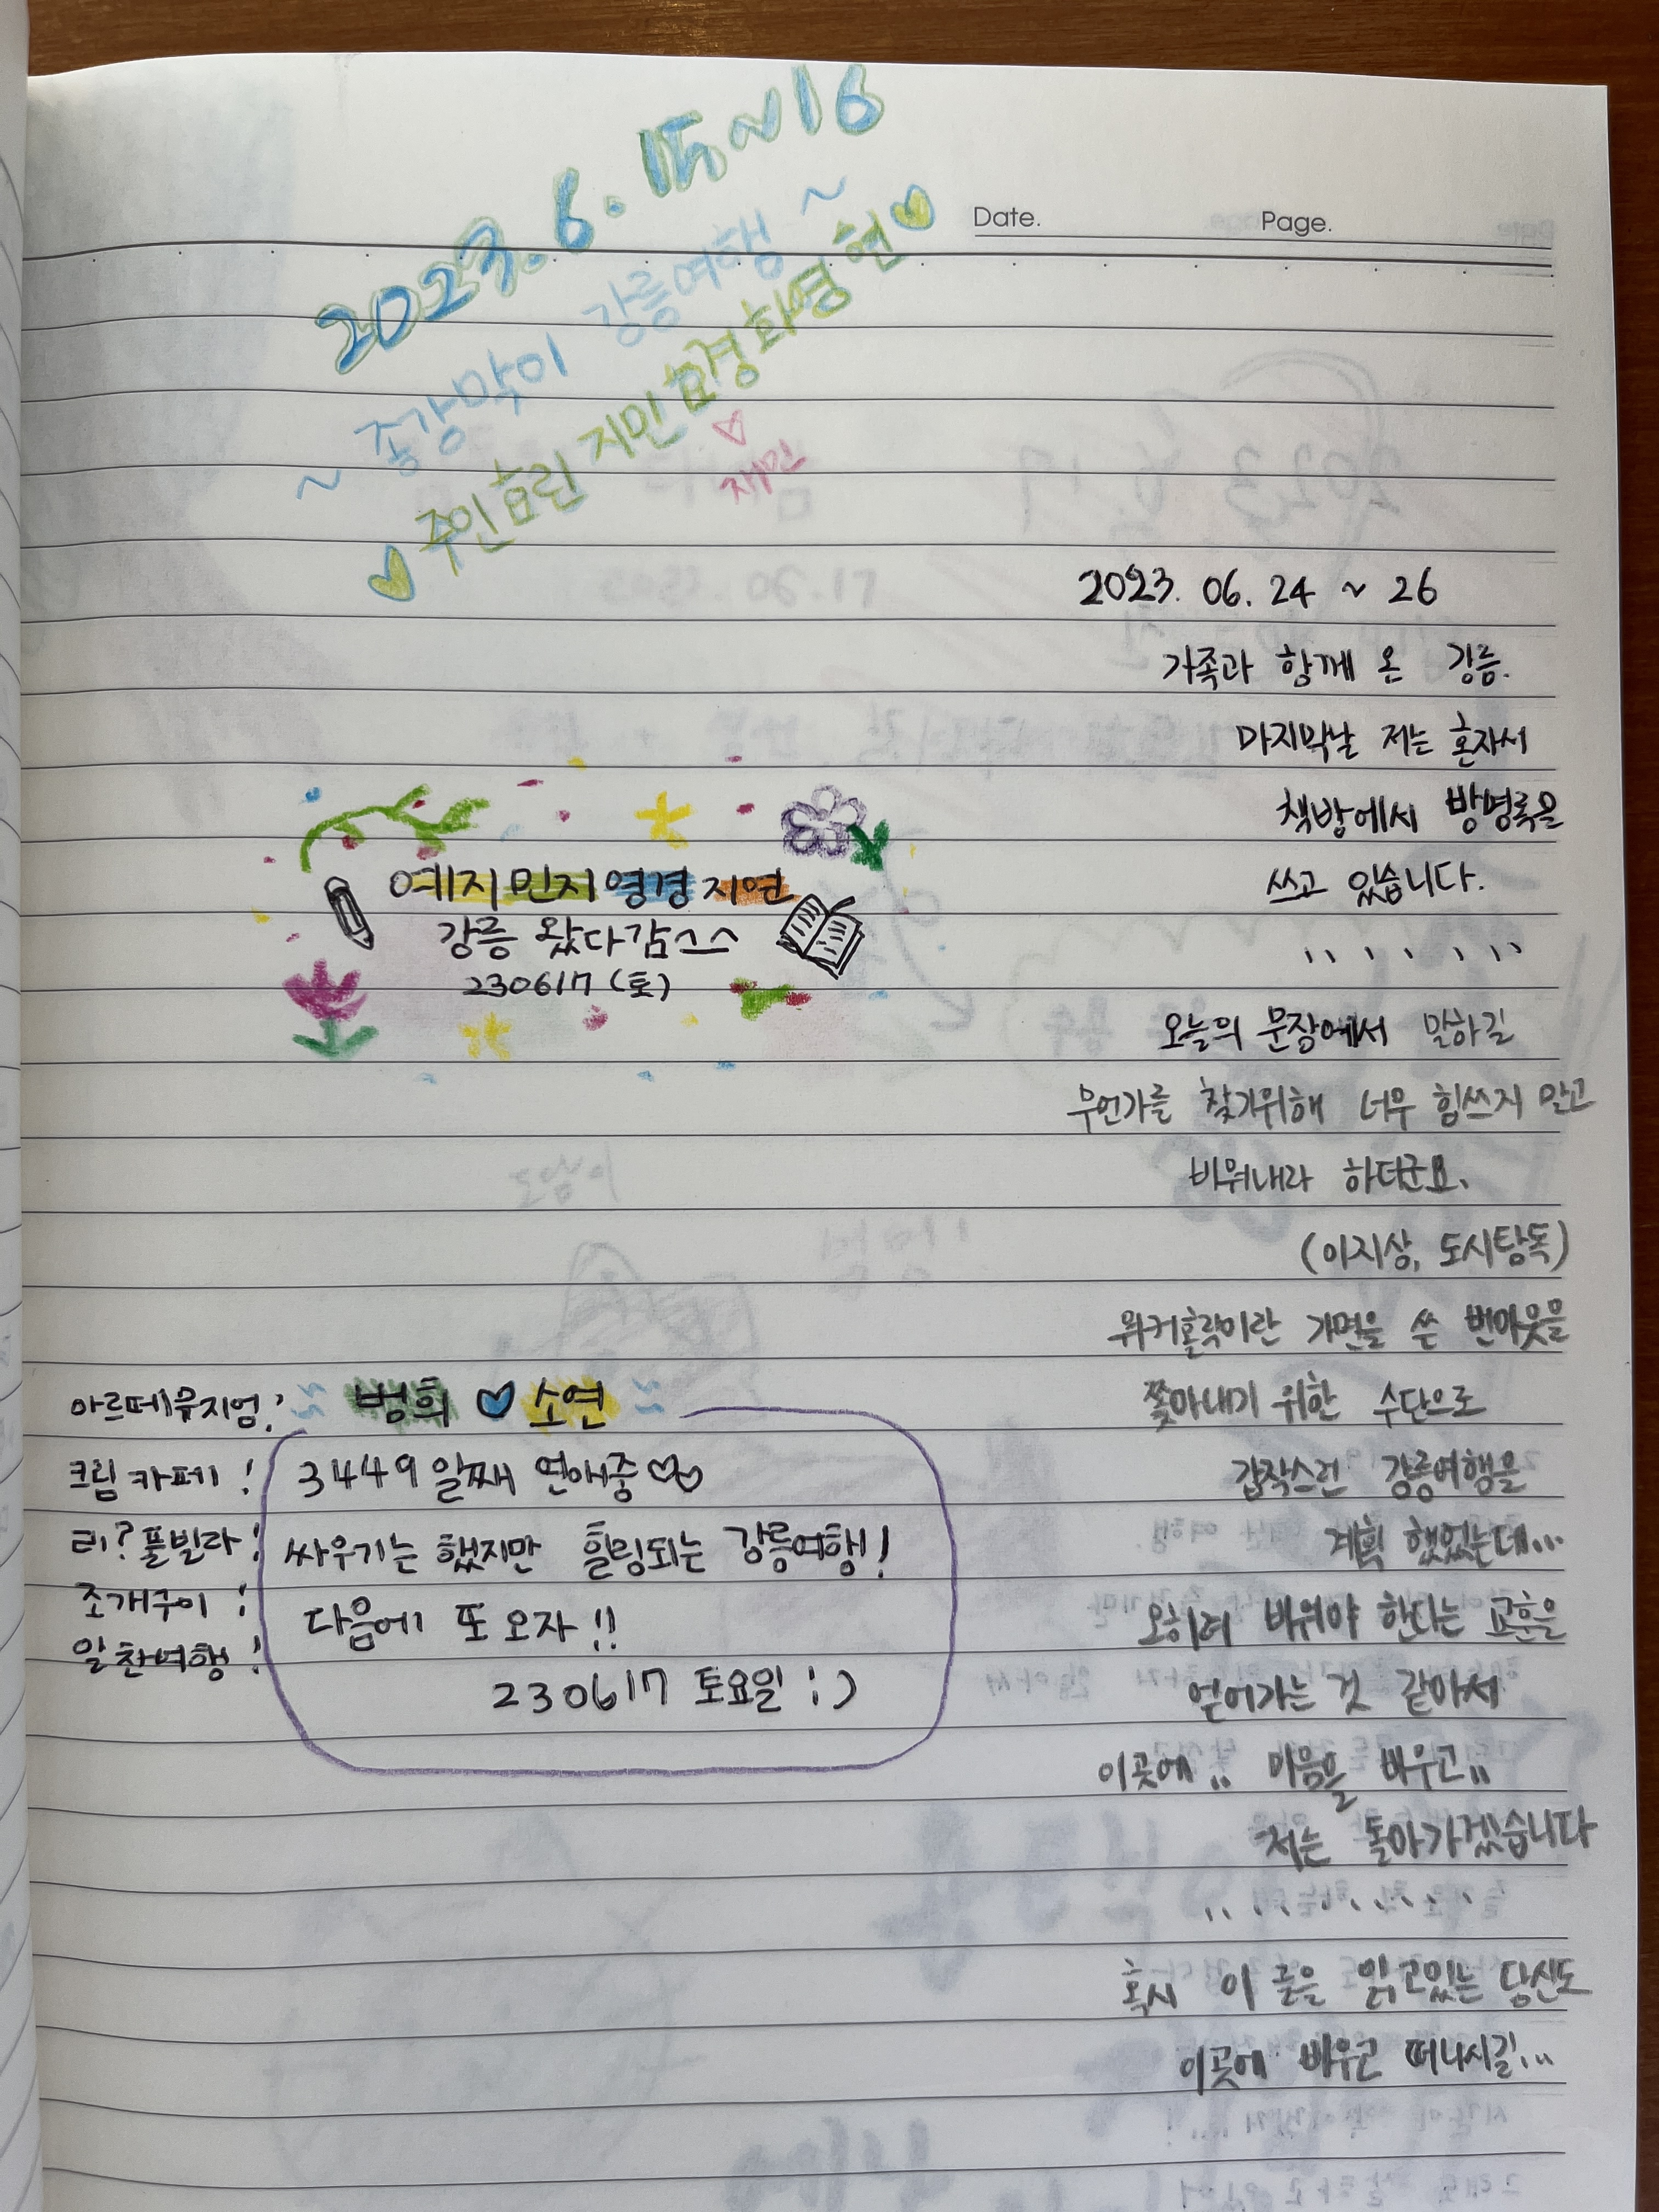 2023.6.15~16
~ 종강막이 강릉여행 ~
주인 효린 지민 효경 화영 현
재민
Date.
Page.
예지 민지 영경 지연
강릉 왔다감ㅅㅅ
230617 (토)
범희 소연
3449일째 연애중
싸우기는 했지만 힐링되는 강릉여행!
다음에 또 오자!!
230617 토요일 :)
아르떼뮤지엄!
크림 카페!
티? 풀빌라!
조개구이!
알찬여행!
2023. 06. 24 ~ 26
가족과 함께 온 강릉.
마지막날 저는 혼자서
책방에서 방명록을
쓰고 있습니다.
오늘의 문장에서 말하길
무언가를 찾기위해 너무 힘쓰지 말고
비워내라 하더군요.
(이지상, 도시탐독)
워커홀릭이란 가면을 쓴 번아웃을
쫓아내기 위한 수단으로
갑작스런 강릉여행을
계획 했었는데...
오히려 비워야 한다는 교훈을
얻어가는 것 같아서
이곳에.. 마음을 비우고..
저는 돌아가겠습니다
혹시 이 글을 읽고있는 당신도
이곳에 비우고 떠나시길...